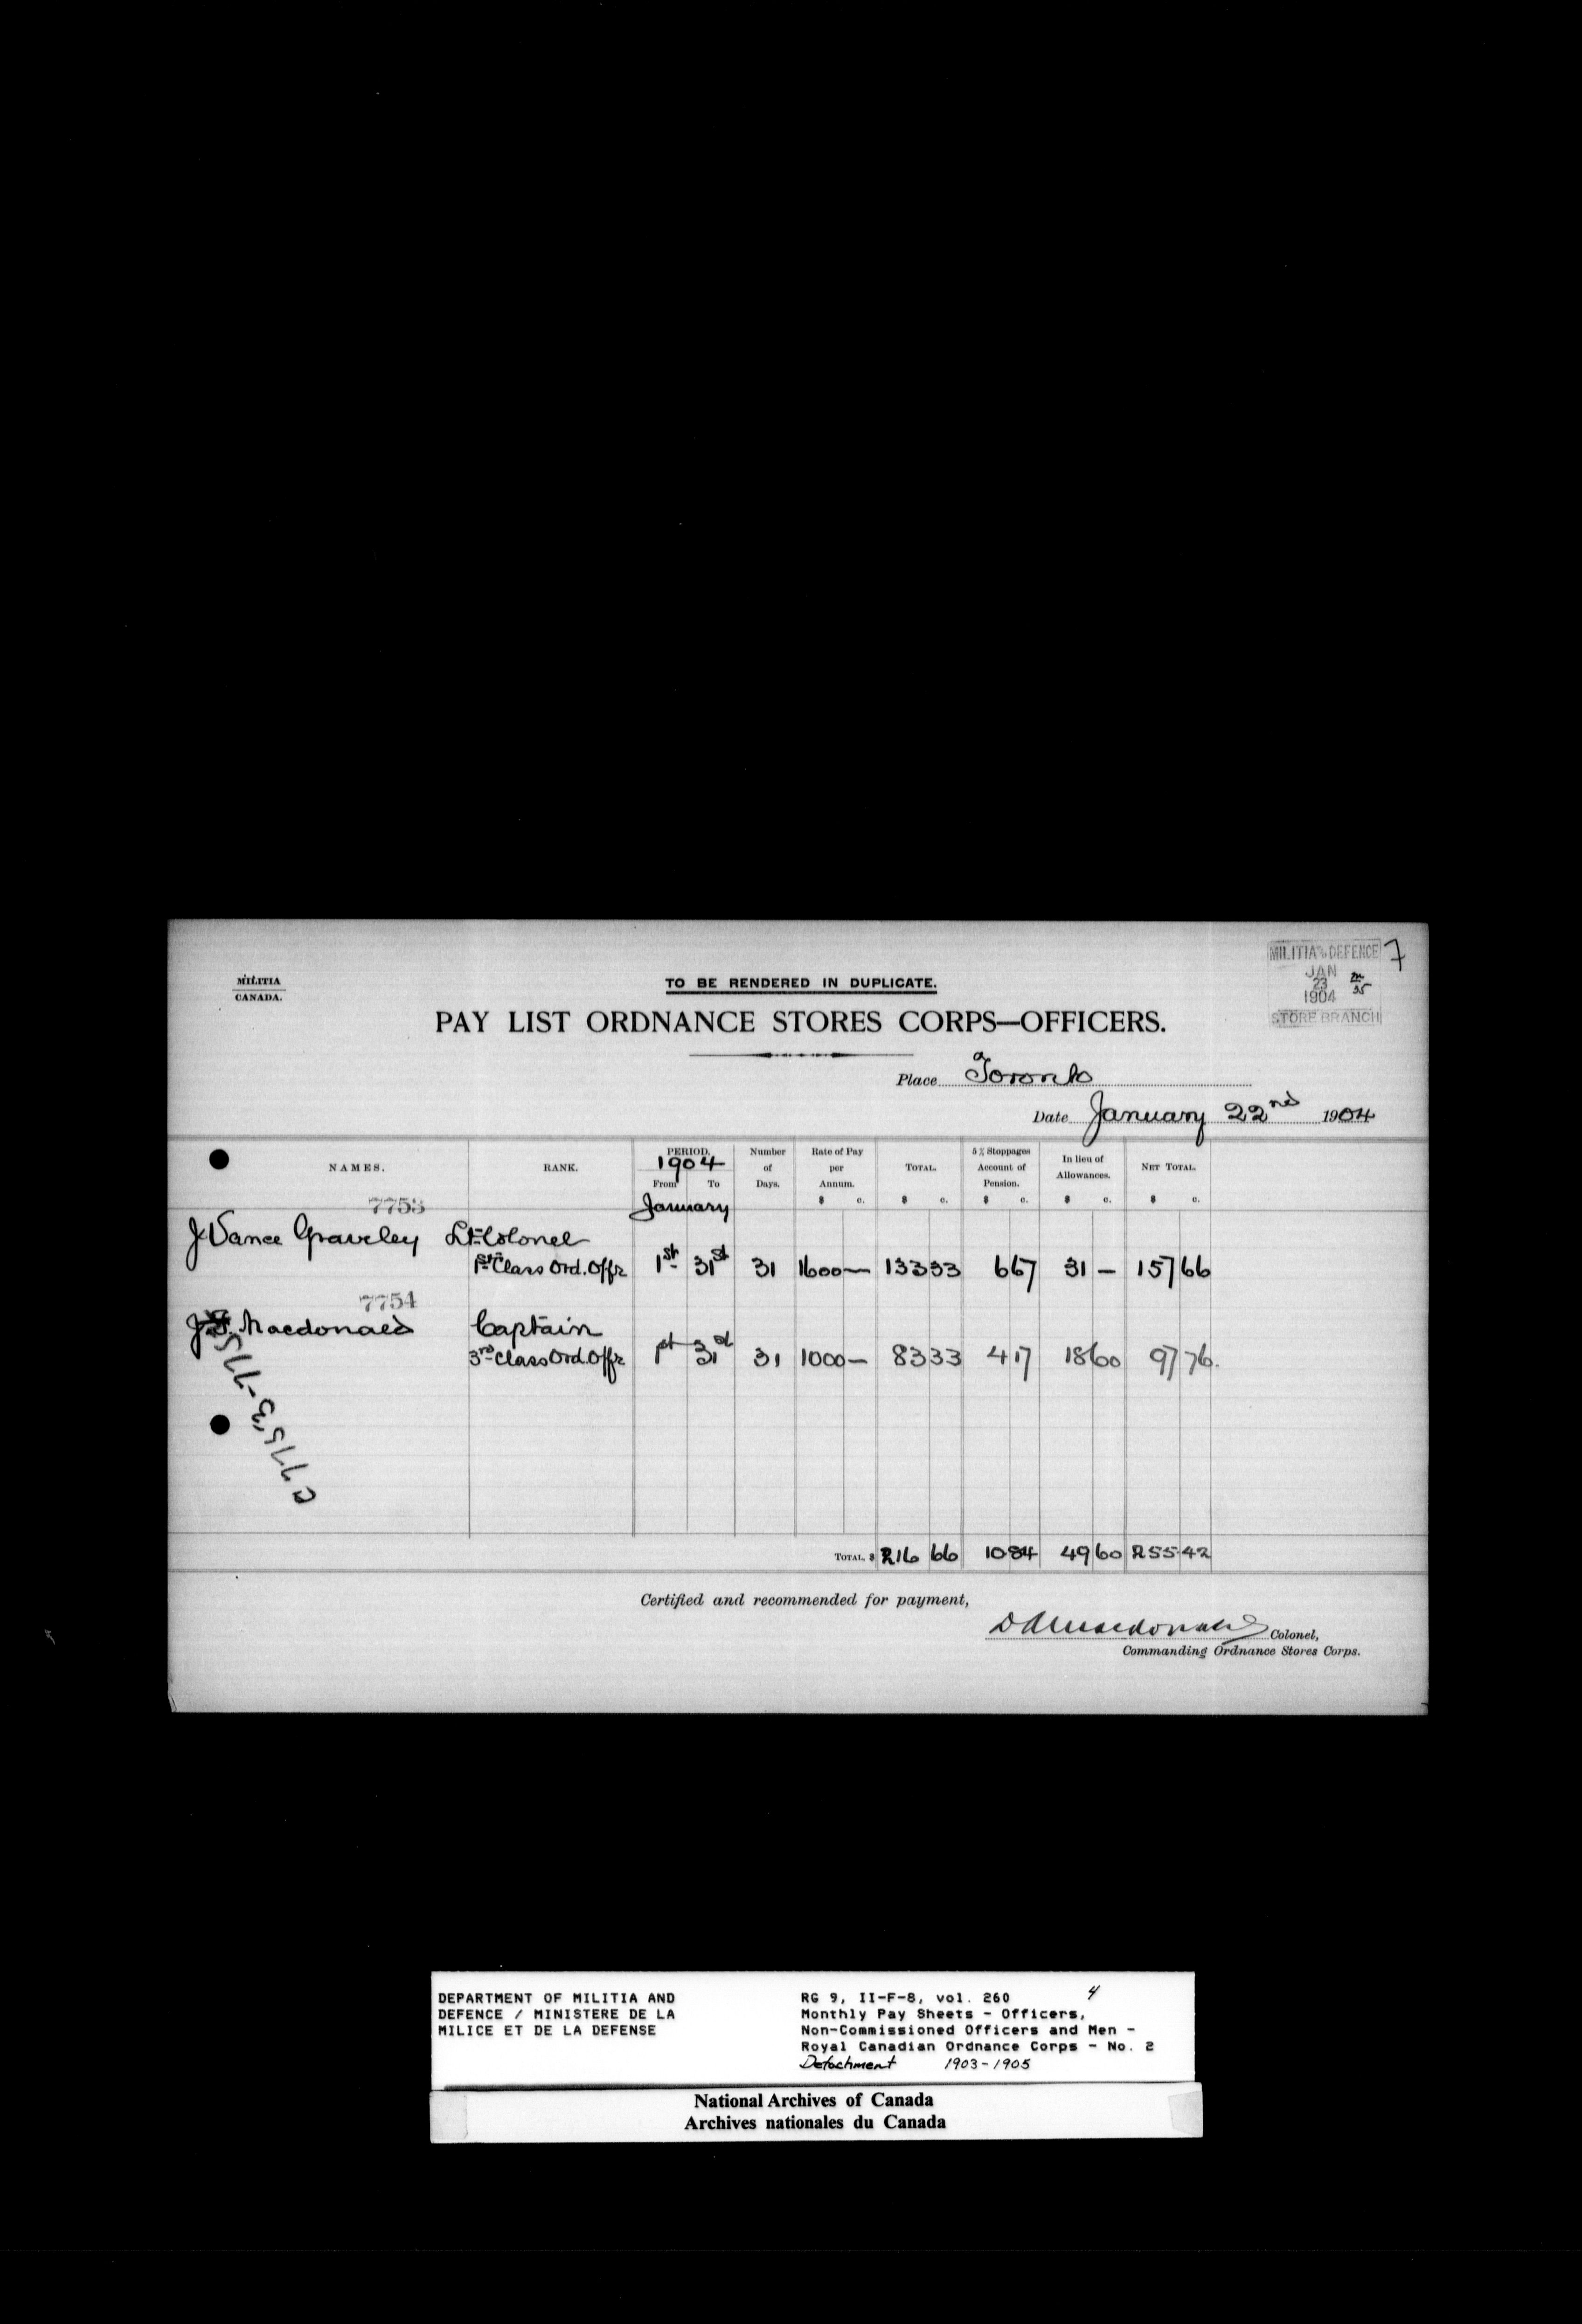 MILITIA
CANADA.
TO BE RENDERED IN DUPLICATE.
MILITIA & DEFENCE
JAN
23
1904
STORE BRANCH
7
PAY LIST ORDNANCE STORES CORPS—OFFICERS.
Place Toronto
Date January 22nd 1904
NAMES. RANK. PERIOD. 1904 From To Number of Days. Rate of Pay per Annum. $ c. TOTAL. $ c. 5% Stoppages Account of Pension. $ c. In lieu of Allowances. $ c. NET TOTAL. $ c.
7753 January
J. Vance Graveley Lt. Colonel
1st Class Ord. Offr 1st 31st 31 1600 — 133 33 6 67 31 — 157 66
7754
J. F. Macdonald Captain
3rd Class Ord. Offr 1st 31st 31 1000 — 83 33 4 17 18 60 97 76.
TOTAL. $ 216 66 10 84 49 60 255 42
Certified and recommended for payment,
D A Macdonald Colonel,
Commanding Ordnance Stores Corps.
DEPARTMENT OF MILITIA AND
DEFENCE / MINISTERE DE LA
MILICE ET DE LA DEFENSE
RG 9, II-F-8, vol. 260 4
Monthly Pay Sheets - Officers,
Non-Commissioned Officers and Men -
Royal Canadian Ordnance Corps - No. 2
Detachment 1903-1905
National Archives of Canada
Archives nationales du Canada